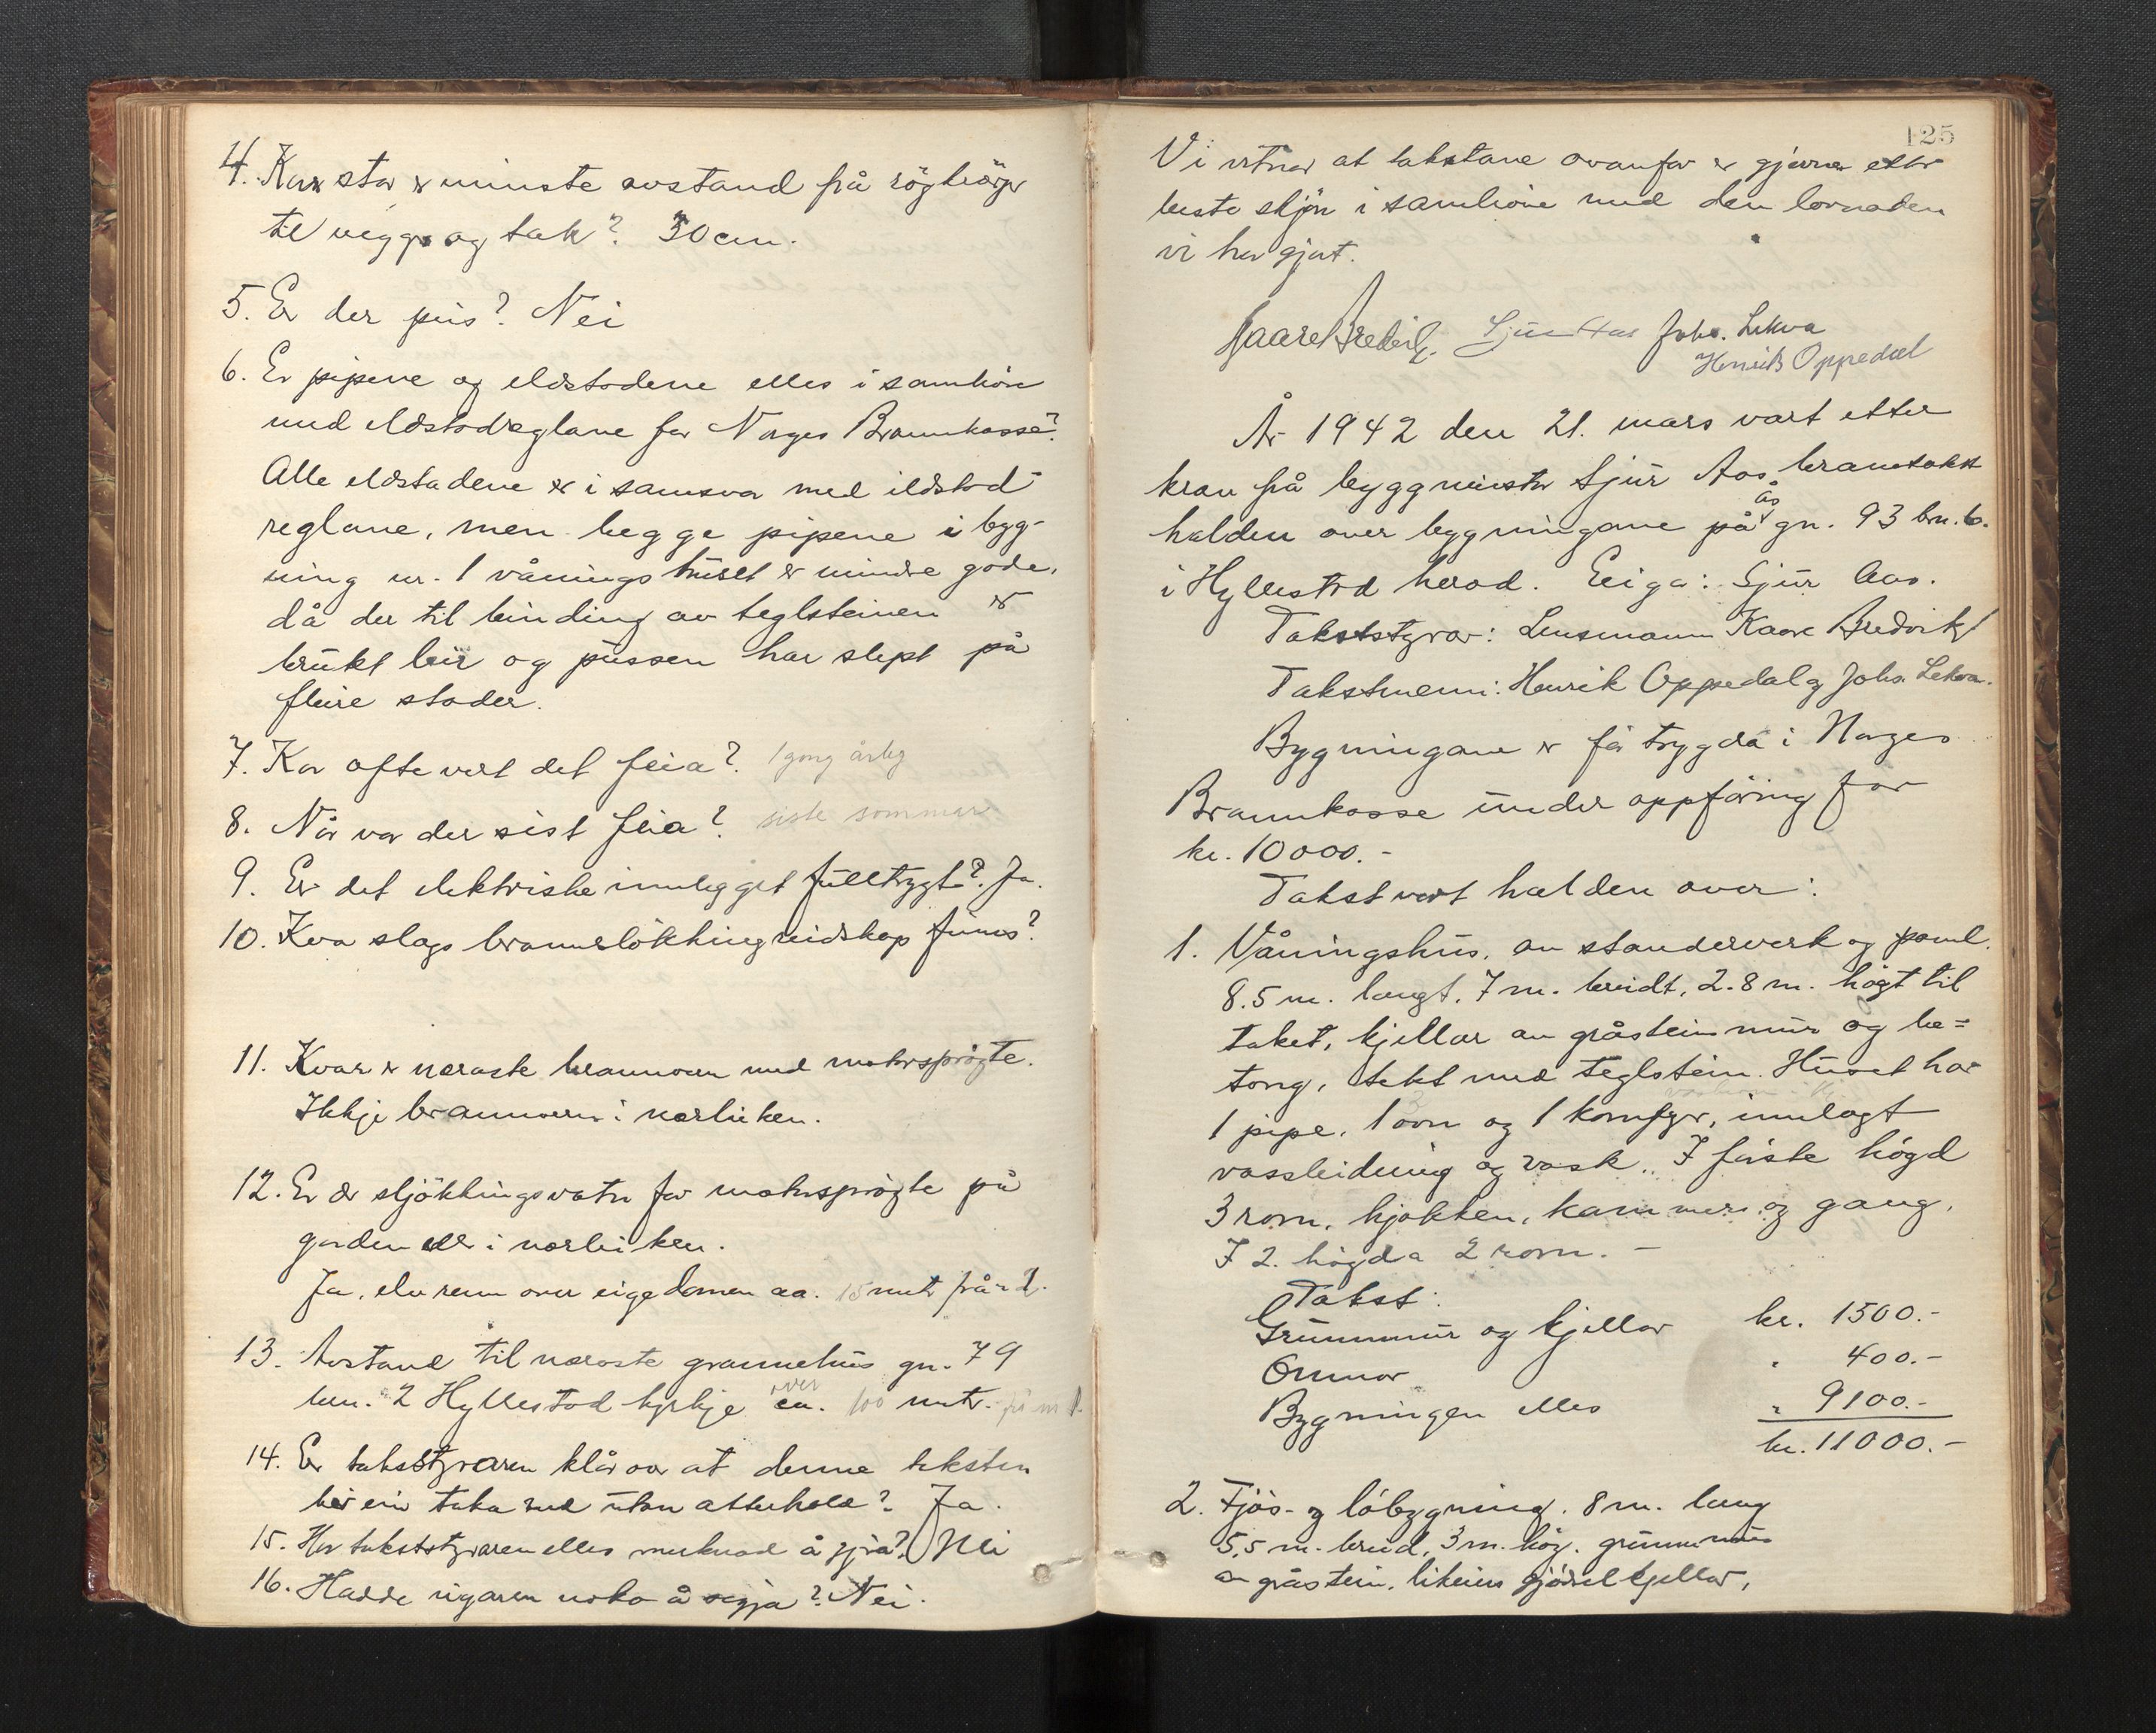 4. Kor stor er minste avstand frå røghørger
til vegg og tak? 30 cm.
5. Er der peis? Nei
6. Er pipene og eldstadene elles i samhöve
med eldstadreglane for Norges Brannkasse?
Alle eldstadene er i samsvar med ildstad
reglane, men begge pipene i byg-
ning nr. 1 våningshuset er mindre gode,
då der til binding av teglsteinen er
brukt leir og pussen har slept på
fleire stader.
7. Kor ofte vert det feia? 1 gong årleg
8. Når var der sist feia? siste sommar
9. Er det elektriske innlegget fulltrygt? Ja.
10. Kva slags brannslökkingreidskap finnes?
11. Kvar er næraste brannvern med motorspröyte.
Ikkje brannvern i nærleiken.
12. Er der sljökkingsvatn for motorspröyte på
garden ell i nærleiken.
Ja, elv renn over eigedomen ca. 15 mtr frå nr 2.
13. Avstand til næraste grannehus gn. 79
brn. 2 Hyllestad kyrkje over ca. 100 mtr. frå nr 1.
14. Er takststyraren klår over at denne taksten
bör ein taka med utan atterhald? Ja.
15. Har takststyraren elles merknad å gjera? Nei
16. Hadde eigaren noko å segja? Nei.
125
Vi vitnar at takstane ovanfor er gjorne etter
beste skjön i samhöve med den lovnaden
vi har gjort.
Kaare Bredvik Sjur Aas Johs. Lekva
Henrik Oppedal
År 1942 den 21. mars vart etter
krav frå byggmeister Sjur Aas branntakst
halden over bygningane på Ås gn. 93 brn. 6.
i Hyllestad herad. Eiga: Sjur Aas.
Takststyrar: Lensmann Kaare Bredvik
Takstmenn: Henrik Oppedal og Johs. Lekva.
Bygningane er før trygda i Norges
Brannkasse under oppföring for
kr. 10000.-
Takst vart halden over:
1. Våningshus, av standerverk og panel.
8.5 m. langt. 7 m. breidt, 2.8 m. högt til
taket, kjellar av gråsteinsmur og be=
tong, tekt med teglstein. Huset har
1 pipe. 1 ovn og 1 komfyr, innlagt
vassleidning og vask. I förste högd
3 rom, kjøkken, kammers og gang,
I 2. högda 2 rom. -
Takst:
Grunnmur og kjellar kr. 1500.-
Omnar " 400.-
Bygningen elles " 9100.-
kr. 11000.-
2. Fjös- og löbygning. 8 m. lang
5,5 m. breid, 3 m. hög. grunnmur
av gråstein, likeins gjödselkjellar,